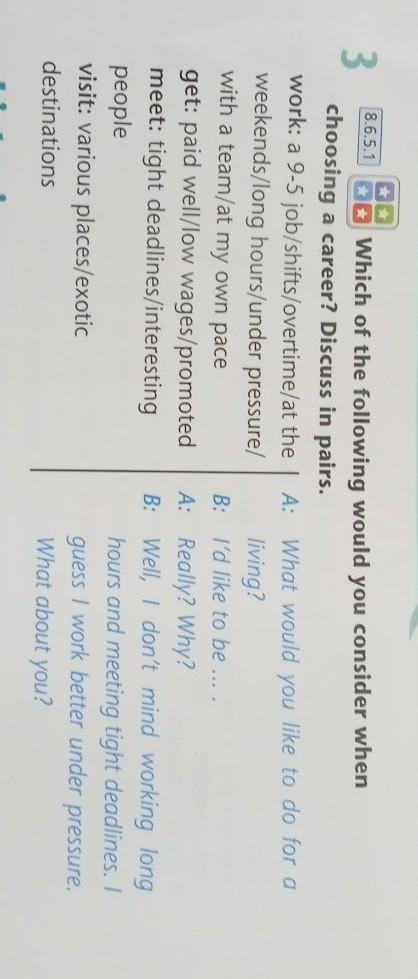 3 8.6.5.1 Which of the following would you consider when
choosing a career? Discuss in pairs.
work: a 9-5 job/shifts/overtime/at the
weekends/long hours/under pressure/
with a team/at my own pace
get: paid well/low wages/promoted
meet: tight deadlines/interesting
people
visit: various places/exotic
destinations
A: What would you like to do for a
living?
B: I'd like to be ... .
A: Really? Why?
B: Well, I don't mind working long
hours and meeting tight deadlines. I
guess I work better under pressure.
What about you?